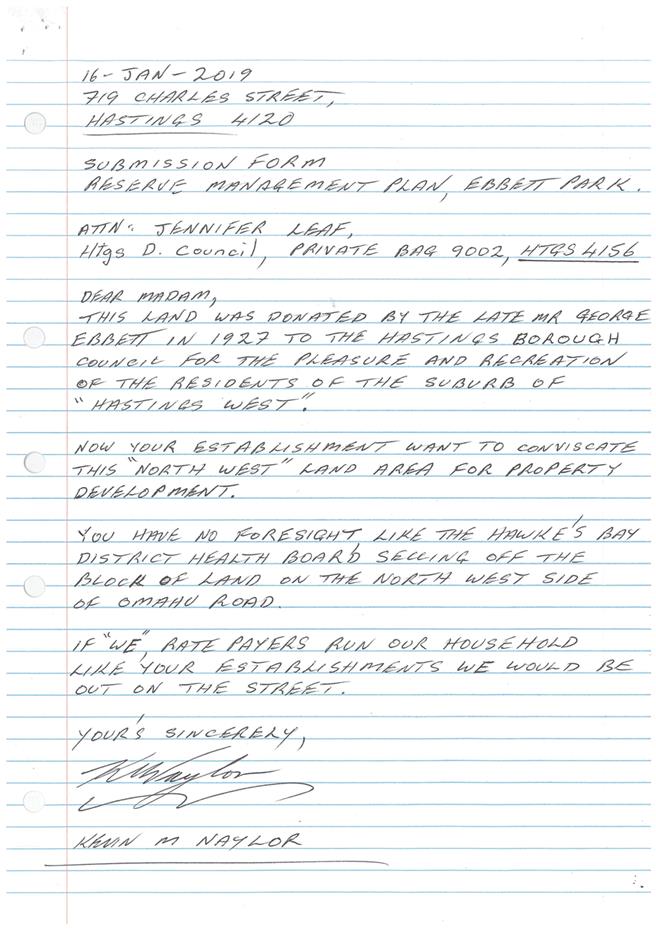 16-JAN-2019
719 CHARLES STREET,
HASTINGS 4120
SUBMISSION FORM
RESERVE MANAGEMENT PLAN, EBBETT PARK.
ATTN: JENNIFER LEAF,
Htgs D. Council, PRIVATE BAG 9002, HTGS 4156
DEAR MADAM,
THIS LAND WAS DONATED BY THE LATE MR GEORGE
EBBETT IN 1927 TO THE HASTINGS BOROUGH
COUNCIL FOR THE PLEASURE AND RECREATION
OF THE RESIDENTS OF THE SUBURB OF
"HASTINGS WEST".
NOW YOUR ESTABLISHMENT WANT TO CONVISCATE
THIS "NORTH WEST" LAND AREA FOR PROPERTY
DEVELOPMENT.
YOU HAVE NO FORESIGHT, LIKE THE HAWKE'S BAY
DISTRICT HEALTH BOARD SELLING OFF THE
BLOCK OF LAND ON THE NORTH WEST SIDE
OF OMAHU ROAD.
IF "WE", RATE PAYERS RUN OUR HOUSEHOLD
LIKE YOUR ESTABLISHMENTS WE WOULD BE
OUT ON THE STREET.
YOUR'S SINCERELY,
KMNaylor
KEVIN M NAYLOR